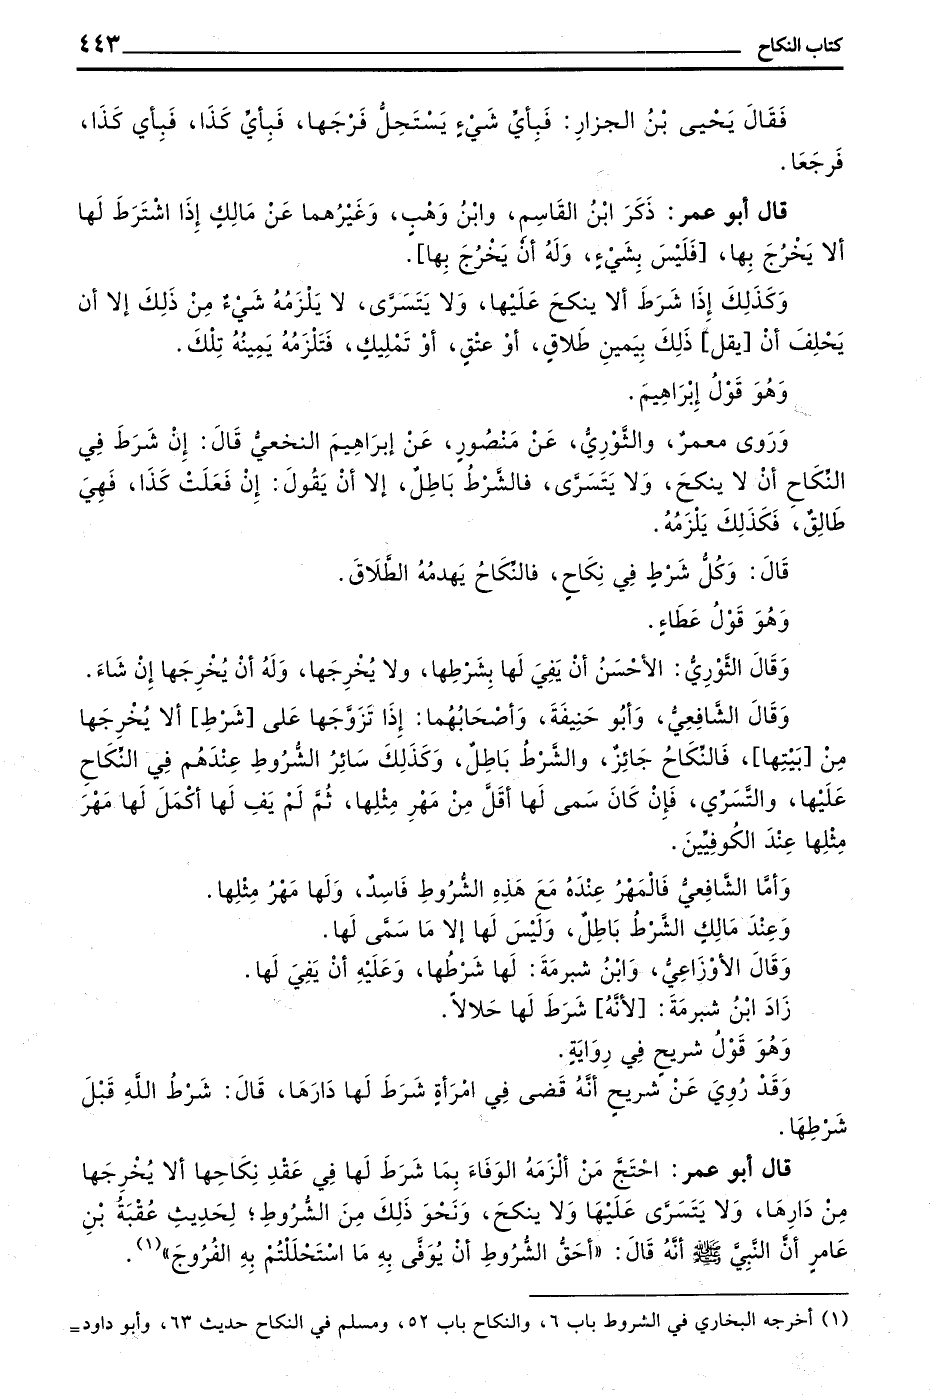 كتاب النكاح ٤٤٣
فَقَالَ يَحْيى بْنُ الجزارِ: فَبِأيِّ شَيْءٍ يَسْتَحِلُّ فَرْجَها، فَبِأيِّ كَذَا، فَبِأي كَذَا،
فَرجَعَا.
قال أبو عمر: ذَكَرَ ابْنُ القَاسِمِ، وابْنُ وَهْبٍ، وَغَيْرُهما عَنْ مَالِكٍ إذَا اشْتَرَطَ لَها
ألا يَخْرُجَ بِها، [فَلَيْسَ بِشَيْءٍ، وَلَهُ أنْ يَخْرُجَ بِها].
وَكَذَلِكَ إذَا شَرَطَ ألا ينكحَ عَلَيْها، وَلا يَتَسَرَّى، لا يَلْزَمُهُ شَيْءٌ مِنْ ذَلِكَ إلا أن
يَحْلِفَ أنْ [يقل] ذَلِكَ بِيَمينِ طَلاقٍ، أوْ عتْقٍ، أوْ تَمْلِيكٍ، فَتَلْزَمُهُ يَمِينُهُ تِلْكَ.
وَهُوَ قَوْلُ إبْرَاهِيمَ.
وَرَوى معمرٌ، والثَّوْرِيُّ، عَنْ مَنْصُورٍ، عَنْ إبرَاهِيمَ النخعيُّ قَالَ: إنْ شَرَطَ فِي
النِّكَاحِ أنْ لا ينكحَ، وَلا يَتَسَرَّى، فالشَّرْطُ بَاطِلٌ، إلا أنْ يَقُولَ: إنْ فَعَلَتْ كَذَا، فَهِيَ
طَالِقٌ، فَكَذَلِكَ يَلْزَمُهُ.
قَالَ: وَكُلُّ شَرْطٍ فِي نِكَاحٍ، فالنّكاحُ يَهدمُهُ الطَّلَاقَ.
وَهُوَ قَوْلُ عَطَاءٍ.
وَقَالَ الثَّوْرِيُّ: الأحْسَنُ أنْ يَفِيَ لَها بِشَرْطِها، ولا يُخْرِجَها، وَلَهُ أنْ يُخْرِجَها إنْ شَاءَ.
وَقَالَ الشَّافِعِيُّ، وَأبُو حَنِيفَةَ، وَأصْحَابُهُما: إذَا تَزَوَّجَها عَلى [شَرْطِ] ألا يُخْرِجَها
مِنْ [بَيْتِها]، فَالنِّكاحُ جَائِزٌ، والشَّرْطُ بَاطِلٌ، وَكَذَلِكَ سَائِرُ الشُّروطِ عِنْدَهُم فِي النِّكَاحِ
عَلَيْها، والتَّسَرِّي، فَإنْ كَانَ سَمى لَها أقَلَّ مِنْ مَهْرِ مِثْلِها، ثُمَّ لَمْ يَفِ لَها أكْمَلَ لَها مَهْرَ
مِثْلِها عِنْدَ الكُوفِيِّينَ.
وَأمَّا الشَّافِعيُّ فَالْمَهْرُ عِنْدَهُ مَعَ هَذِهِ الشُّرُوطِ فَاسِدٌ، وَلَها مَهْرُ مِثْلِها.
وَعِنْدَ مَالِكٍ الشَّرْطُ بَاطِلٌ، وَلَيْسَ لَها إلا مَا سَمَّى لَها.
وَقَالَ الأوْزَاعِيُّ، وَابْنُ شبرمَةَ: لَها شَرْطُها، وَعَلَيْهِ أنْ يَفِيَ لَها.
زَادَ ابْنُ شبرمَةَ: [لأنَّهُ] شَرَطَ لَها حَلالاً.
وَهُوَ قَوْلُ شريحٍ فِي رِوَايَةٍ.
وَقَدْ رُوِيَ عَنْ شريحٍ أنَّهُ قَضى فِي امْرَأةٍ شَرَطَ لَها دَارَهَا، قَالَ: شَرْطُ اللَّهِ قَبْلَ
شَرْطِهَا.
قال أبو عمر: احْتَجَّ مَنْ ألْزَمَهُ الوَفَاءَ بِمَا شَرَطَ لَها فِي عَقْدِ نِكَاحِها ألا يُخْرِجَها
مِنْ دَارِهَا، وَلا يَتَسَرَّى عَلَيْهَا وَلا ينكحَ، وَنَحْوَ ذَلِكَ مِنَ الشُّرُوطِ؛ لِحَدِيثِ عُقْبَةُ بْنِ
عَامرٍ أنَّ النَّبِيَّ ﷺ أنَّهُ قَالَ: «أحَقُّ الشُّرُوطِ أنْ يُوَفَّى بِهِ مَا اسْتَحْلَلْتُمْ بِهِ الفُرُوجَ»(١).
(١) أخرجه البخاري في الشروط باب ٦، والنكاح باب ٥٢، ومسلم في النكاح حديث ٦٣، وأبو داود=